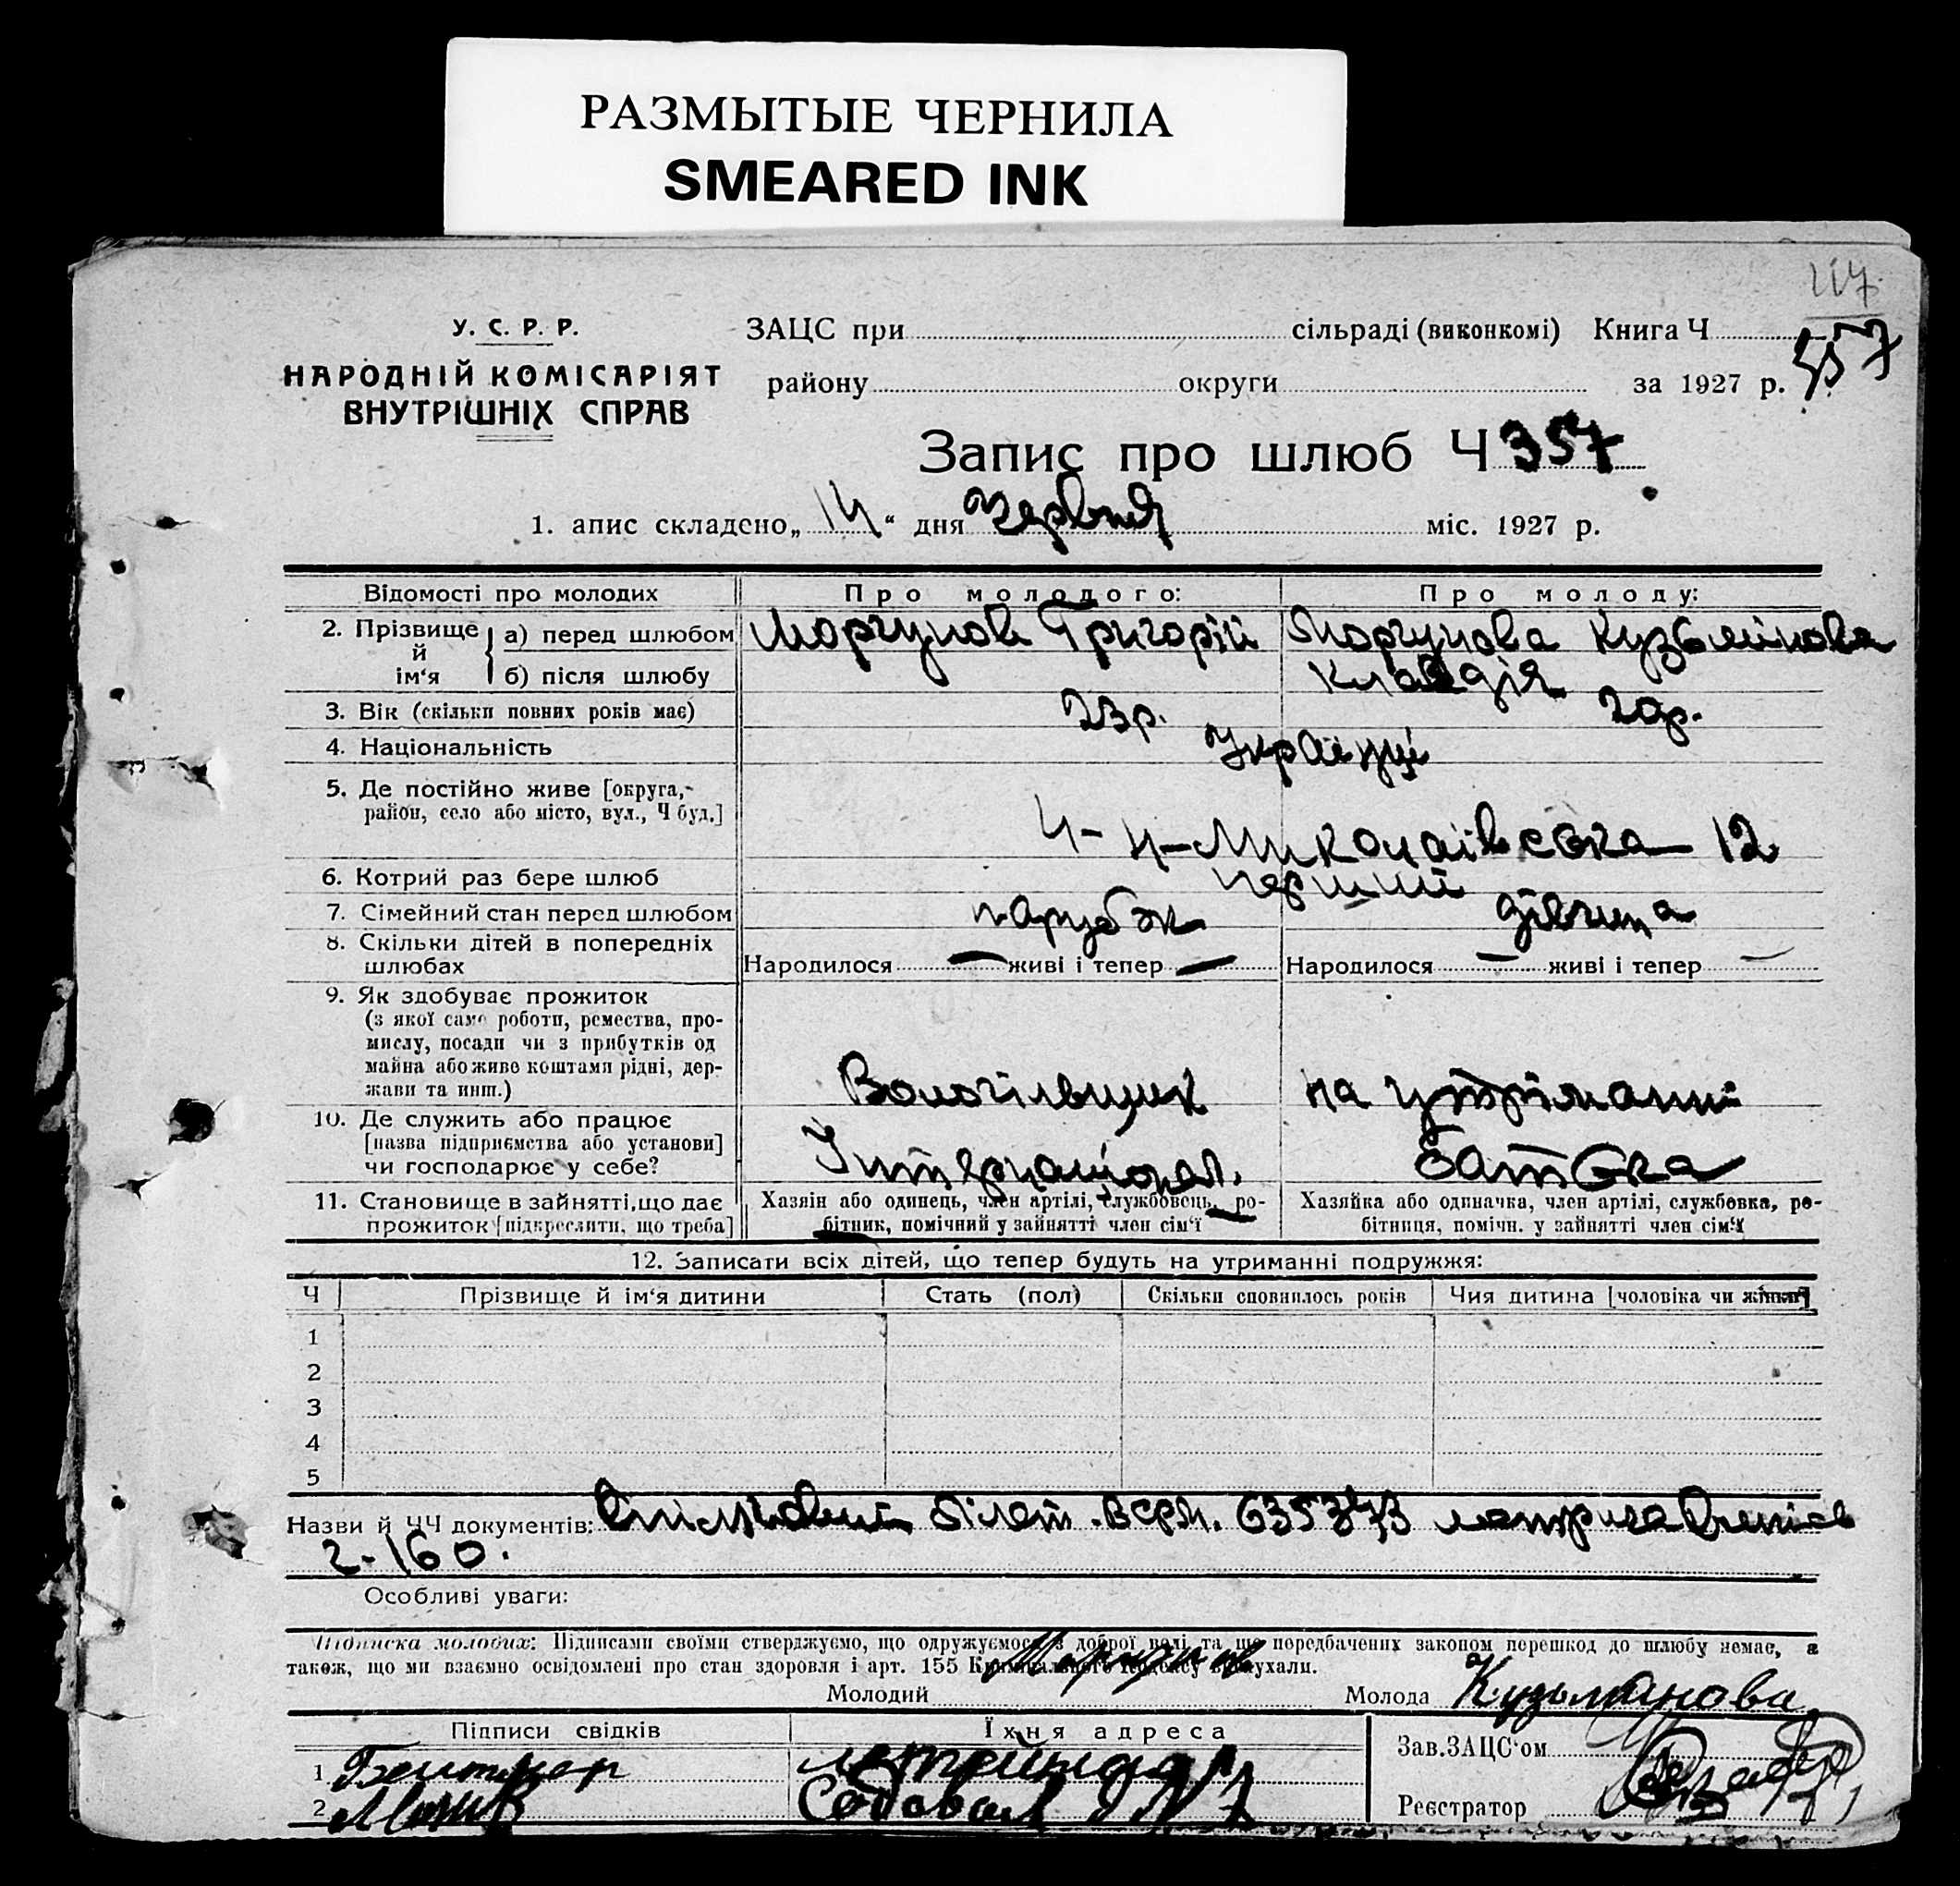 РАЗМЫТЫЕ ЧЕРНИЛА
SMEARED INK
117.
У. С. Р. Р.
НАРОДНІЙ КОМІСАРІЯТ
ВНУТРІШНІХ СПРАВ
ЗАЦС при сільраді (виконкомі) Книга Ч
району округи за 1927 р. 357
Запис про шлюб Ч 357
1. апис складено „14“ дня Червня міс. 1927 р.
Відомості про молодих Про молодого: Про молоду:
2. Прізвище й ім‘я
а) перед шлюбом Моргунов Григорій Моргунова Кузьмінова
б) після шлюбу Клавдія
3. Вік (скільки повних років має) 23 р. 20 р.
4. Національність Українці
5. Де постійно живе [округа, район, село або місто, вул., Ч буд.]
Ч-Н-Миколаївська 12
6. Котрий раз бере шлюб перший
7. Сімейний стан перед шлюбом парубок дівчина
8. Скільки дітей в попередніх шлюбах
Народилося — живі і тепер — Народилося — живі і тепер —
9. Як здобуває прожиток
(з якої саме роботи, ремества, про-
мислу, посади чи з прибутків од
майна або живе коштами рідні, дер-
жави та инш.)
на утріманні
10. Де служить або працює
[назва підприємства або установи]
чи господарює у себе?
Інтернаціонал. батька
11. Становище в зайнятті, що дає
прожиток [підкреслити, що треба]
Хазяїн або одинець, член артілі, службовець, ро-
бітник, помічний у зайнятті член сім‘ї
Хазяйка або одиначка, член артілі, службовка, ро-
бітниця, помічн. у зайнятті член сім‘ї
12. Записати всіх дітей, що тепер будуть на утриманні подружжя:
Ч Прізвище й ім‘я дитини Стать (пол) Скільки сповнилось років Чия дитина [чоловіка чи жінки]
1
2
3
4
5
Назви й ЧЧ документів: Спілковий білет 635373 метрика
2-160.
Особливі уваги:
Підписка молодих: Підписами своїми стверджуємо, що одружуємося з доброї волі та що передбачених законом перешкод до шлюбу немає, а
також, що ми взаємно освідомлені про стан здоровля і арт. 155 Криминального Кодексу вислухали.
Молодий Моргунов Молода Кузьмінова
Підписи свідків Їхня адреса Зав.ЗАЦС‘ом
1
2
Реєстратор